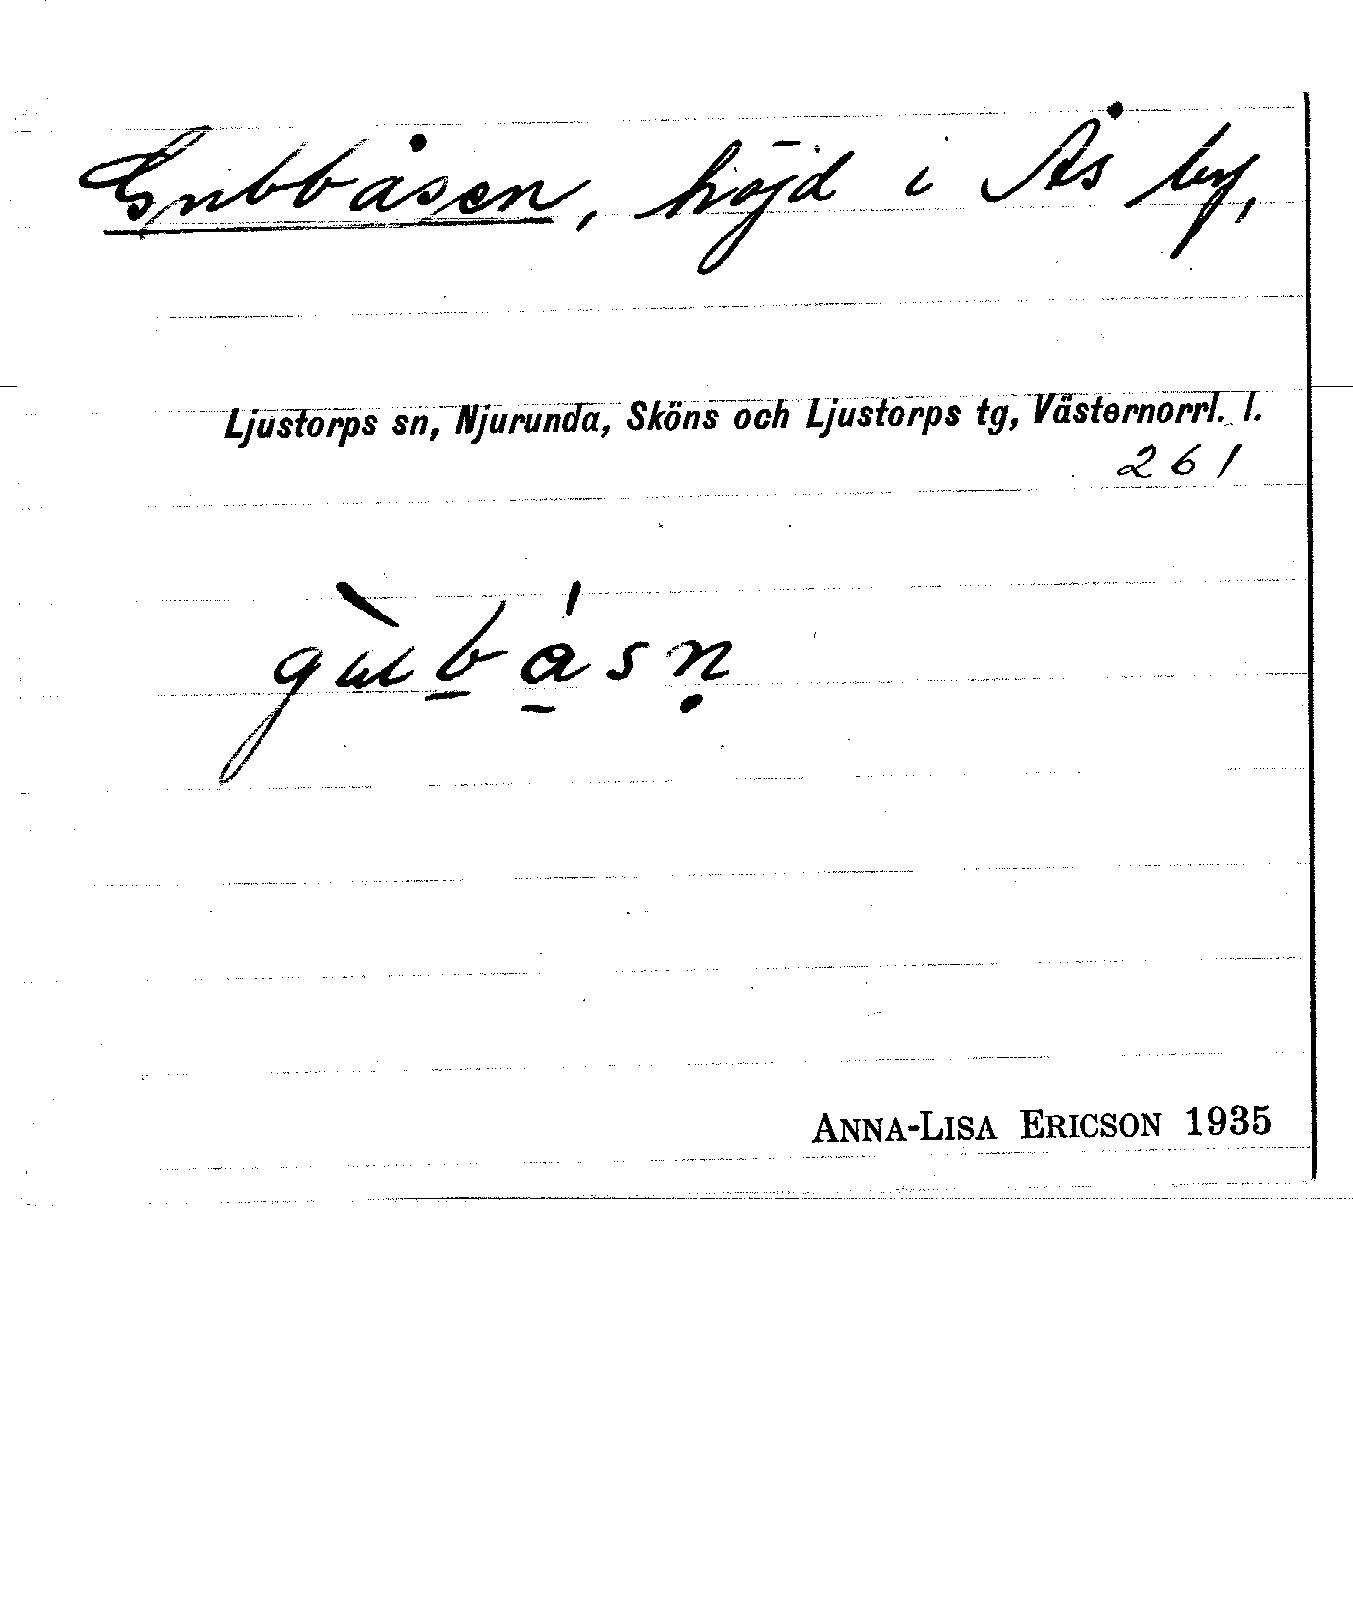 Gubbåsen, höjd i Ås by,
Ljustorps sn, Njurunda, Sköns och Ljustorps tg, Västernorrl. l.
261
gὺb̲á̲sṇ
ANNA-LISA ERICSON 1935